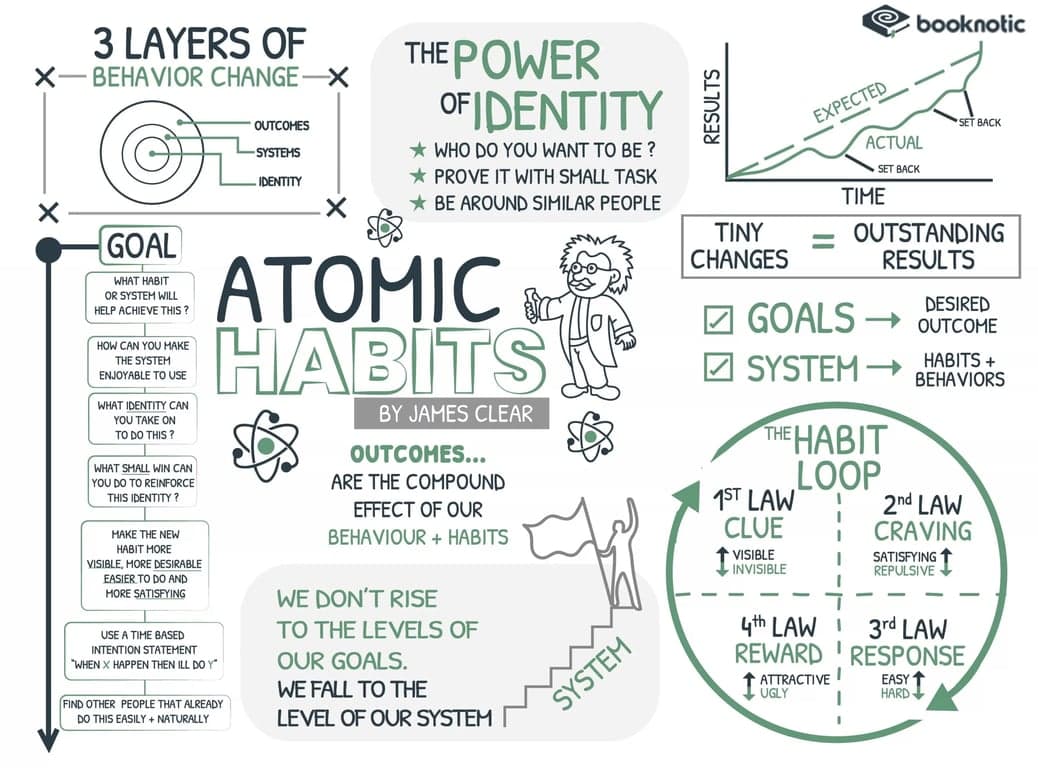 3 LAYERS OF
BEHAVIOR CHANGE
OUTCOMES
SYSTEMS
IDENTITY
THE POWER
OF IDENTITY
WHO DO YOU WANT TO BE ?
PROVE IT WITH SMALL TASK
BE AROUND SIMILAR PEOPLE
booknotic
RESULTS
EXPECTED
SET BACK
ACTUAL
SET BACK
TIME
TINY
CHANGES
=
OUTSTANDING
RESULTS
GOALS → DESIRED
OUTCOME
SYSTEM → HABITS +
BEHAVIORS
GOAL
WHAT HABIT
OR SYSTEM WILL
HELP ACHIEVE THIS ?
HOW CAN YOU MAKE
THE SYSTEM
ENJOYABLE TO USE
WHAT IDENTITY CAN
YOU TAKE ON
TO DO THIS ?
WHAT SMALL WIN CAN
YOU DO TO REINFORCE
THIS IDENTITY ?
MAKE THE NEW
HABIT MORE
VISIBLE, MORE DESIRABLE
EASIER TO DO AND
MORE SATISFYING
USE A TIME BASED
INTENTION STATEMENT
"WHEN X HAPPEN THEN ILL DO Y"
FIND OTHER PEOPLE THAT ALREADY
DO THIS EASILY + NATURALLY
ATOMIC
HABITS
BY JAMES CLEAR
OUTCOMES...
ARE THE COMPOUND
EFFECT OF OUR
BEHAVIOUR + HABITS
WE DON'T RISE
TO THE LEVELS OF
OUR GOALS.
WE FALL TO THE
LEVEL OF OUR SYSTEM
SYSTEM
THE HABIT
LOOP
1ST LAW
CLUE
VISIBLE
INVISIBLE
2nd LAW
CRAVING
SATISFYING
REPULSIVE
4th LAW
REWARD
ATTRACTIVE
UGLY
3rd LAW
RESPONSE
EASY
HARD